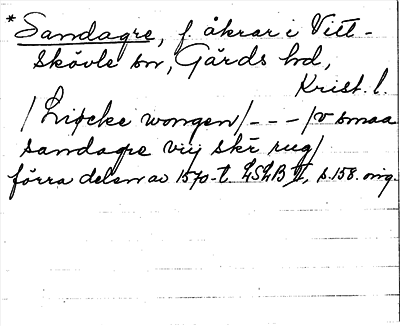 *Sandagre, f. åkrar i Vitt-
skövle sn, Gärds hd,
Krist. l.
/Liocke wongen/ - - - /v smaa
sandagre vij skr rug/
förra delen av 1570-t. LSLB II, s. 158. orig.